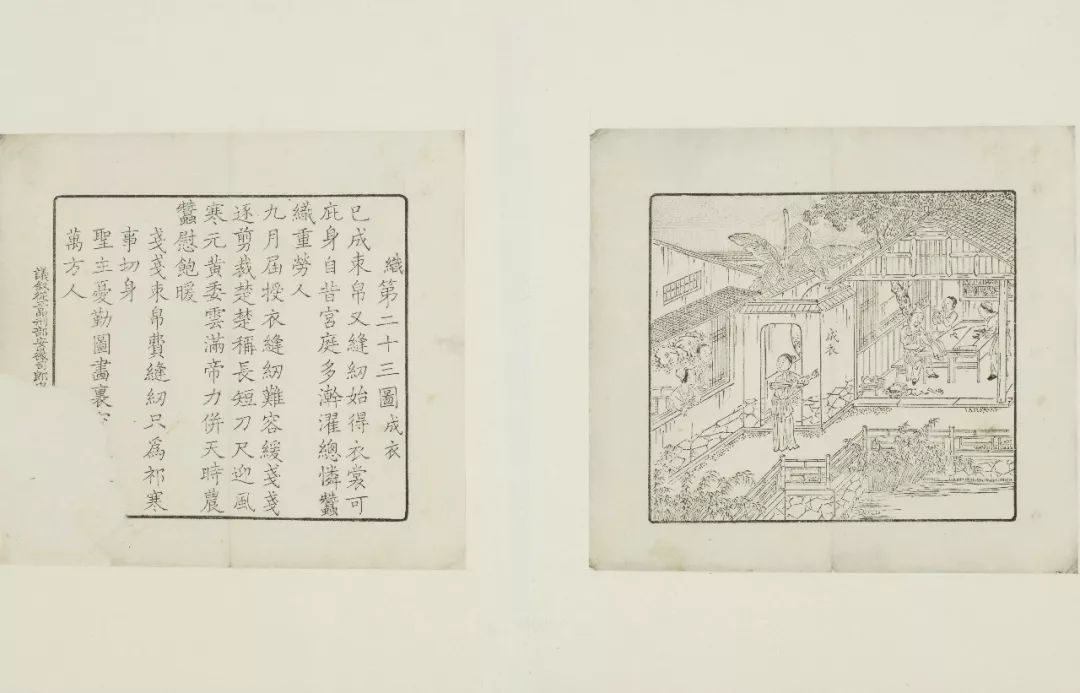 織第二十三圖成衣
已成束帛又縫紉始得衣裳可
庇身自昔宮庭多澣濯總憐蠶
織重勞人
九月屆授衣縫紉難容緩戔戔
逐剪裁楚楚稱長短刀尺迎風
寒元黃委雲滿帝力併天時農
蠶慰飽暖
戔戔束帛費縫紉只爲祁寒
事切身
聖主憂勤圖畫裏
萬方人
議敘從刑部安徽司郎
成衣